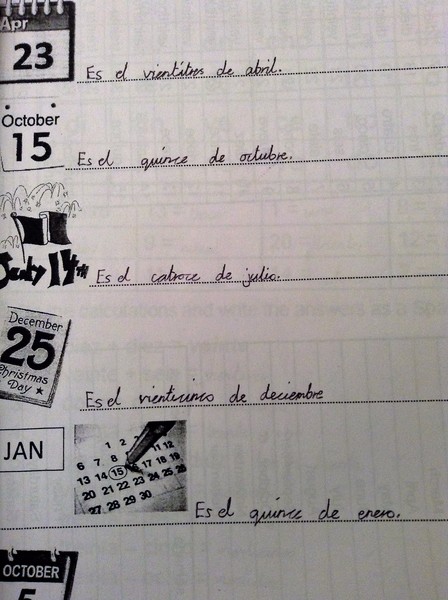 Apr
23
Es el vientitres de abril.
October
15
Es el quince de octubre.
July 14th
Es el catroce de julio.
December
25
Christmas
Day
Es el vienticinco de deciembre
JAN
1 2
6 7 8 11 12
13 14 15 16 17 18 19
20 21 22 23 24 25 26
27 28 29 30
Es el quince de enero.
OCTOBER
5